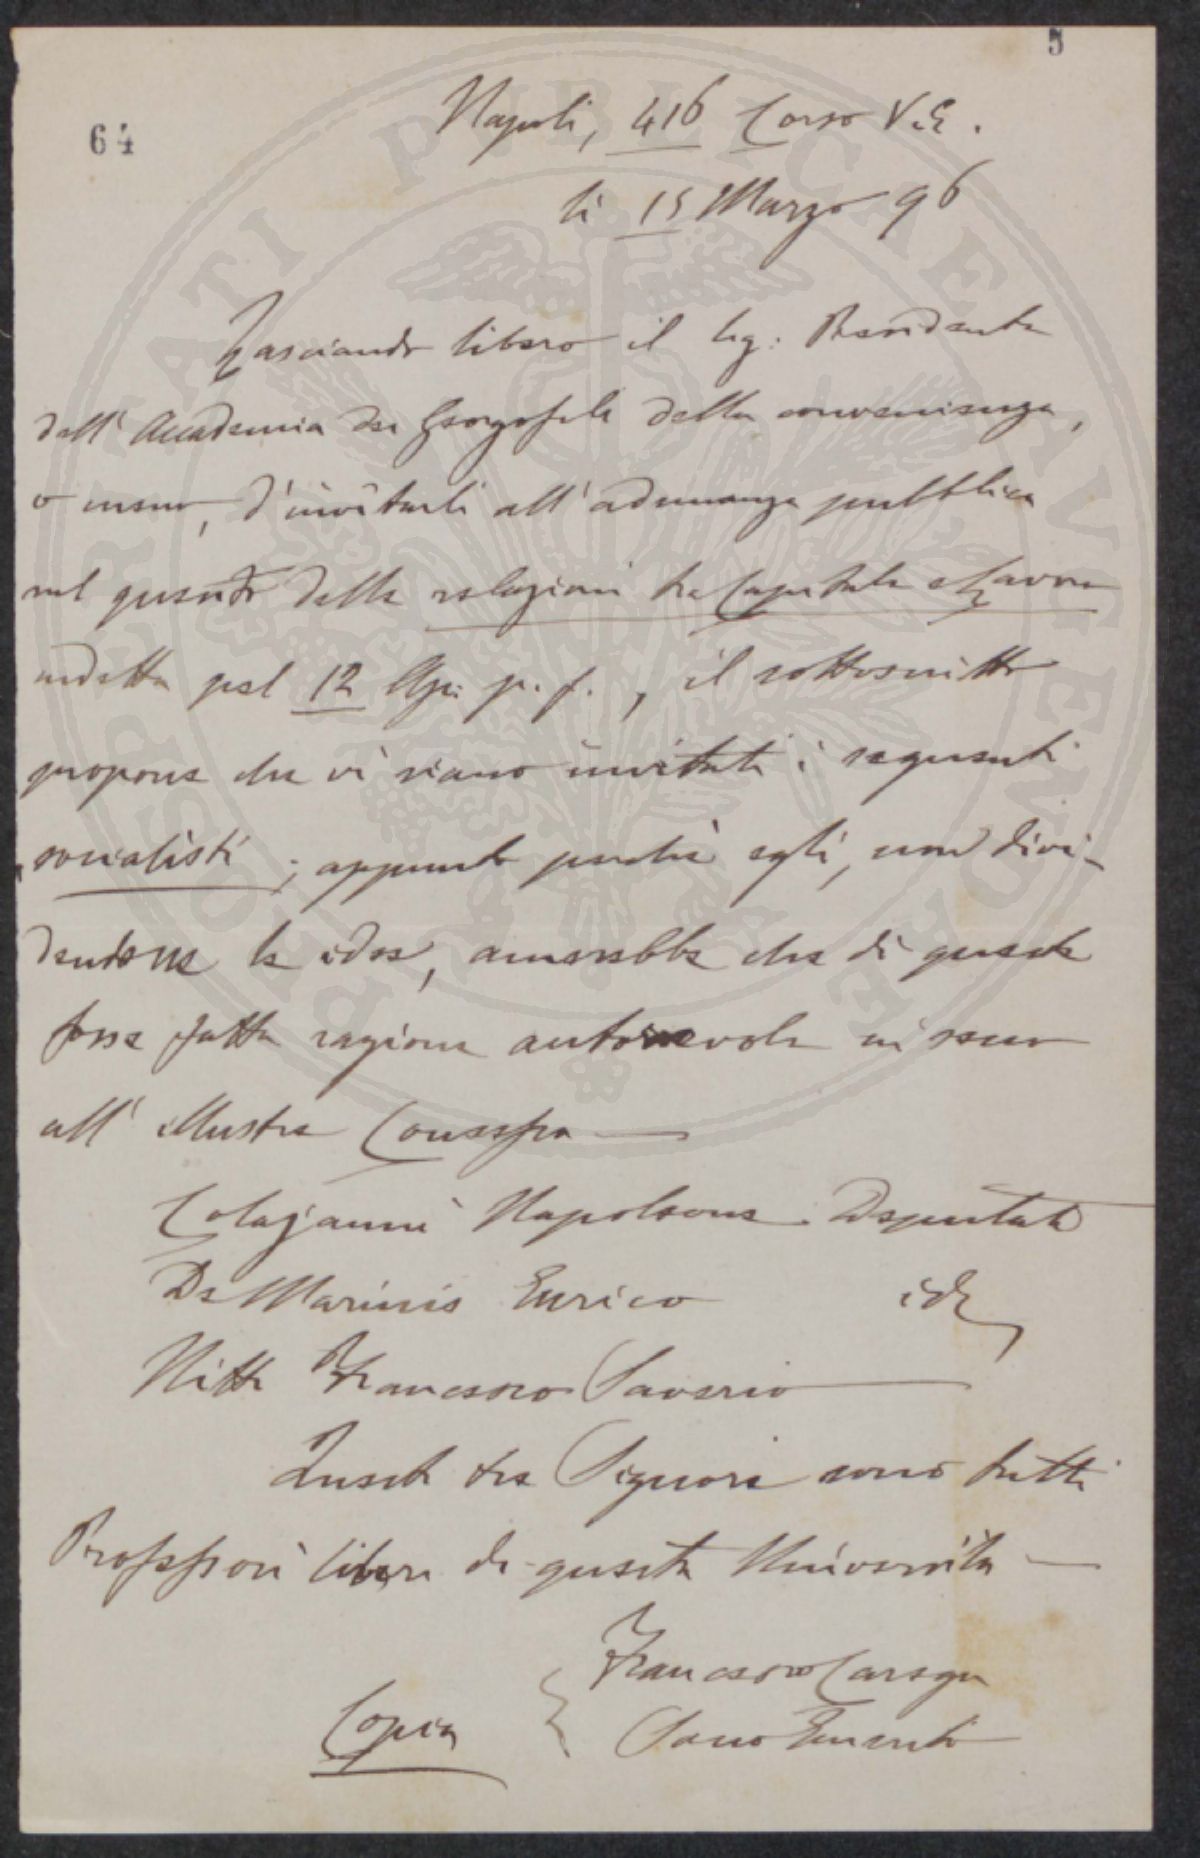 5
64
Napoli, 416 Corso V. E.
li 15 Marzo 96
Lasciando libero il Sig: Presidente
dell' Accademia dei Georgofili della convenienza,
o meno, d'invitarli all' adunanza pubblica
sul quesito delle relazioni tra Capitale e Lavoro
indetta pel 12 Ap: p. f., il sottoscritto
propone che vi siano invitati i seguenti
socialisti; appunto perchè egli, non divi-
dendone le idee, amerebbe che di queste
fosse fatta ragione autorevole in seno
all' illustre Consesso
Colajanni Napoleone Deputato
De Marinis Enrico id
Nitti Francesco Saverio
Questi tre Signori sono tutti
Professori liberi di questa Università
Francesco Carega
Socio Emerito
Copia
PROSPERITATI PUBLICAE AUGENDAE